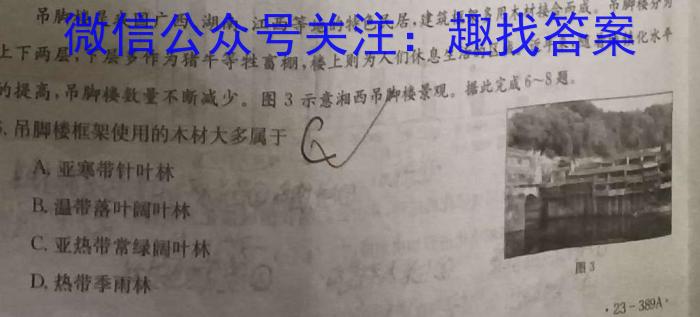 吊脚楼是我国广西、湖南、江西等地的特色民居,建筑框架多用木材接合而成。吊脚楼分为
微信公众号关注:趣找答案
上下两层,下层多作为猪牛等牲畜棚,楼上则为人们休息生活的
化水平
的提高,吊脚楼数量不断减少。图3示意湘西吊脚楼景观。据此完成6~8题。
吊脚楼框架使用的木材大多属于
A.亚寒带针叶林
B.温带落叶阔叶林
C.亚热带常绿阔叶林
D.热带季雨林
图3
·23-389A·